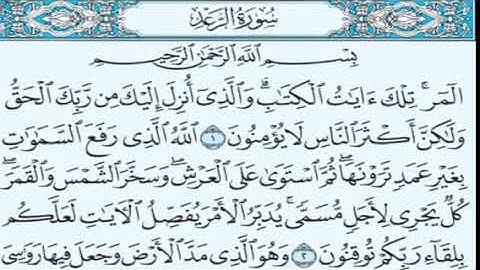 سُورَةُ الرَّعْدِ
بِسْمِ اللَّهِ الرَّحْمَٰنِ الرَّحِيمِ
الٓمٓر ۚ تِلْكَ ءَايَٰتُ ٱلْكِتَٰبِ ۗ وَٱلَّذِىٓ أُنزِلَ إِلَيْكَ مِن رَّبِّكَ ٱلْحَقُّ
وَلَٰكِنَّ أَكْثَرَ ٱلنَّاسِ لَا يُؤْمِنُونَ ١ ٱللَّهُ ٱلَّذِى رَفَعَ ٱلسَّمَٰوَٰتِ
بِغَيْرِ عَمَدٍ تَرَوْنَهَا ۖ ثُمَّ ٱسْتَوَىٰ عَلَى ٱلْعَرْشِ ۖ وَسَخَّرَ ٱلشَّمْسَ وَٱلْقَمَرَ ۖ
كُلٌّ يَجْرِى لِأَجَلٍ مُّسَمًّى ۚ يُدَبِّرُ ٱلْأَمْرَ يُفَصِّلُ ٱلْءَايَٰتِ لَعَلَّكُم
بِلِقَآءِ رَبِّكُمْ تُوقِنُونَ ٢ وَهُوَ ٱلَّذِى مَدَّ ٱلْأَرْضَ وَجَعَلَ فِيهَا رَوَٰسِىَ